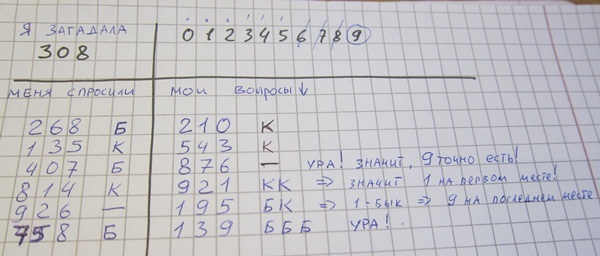 Я ЗАГАДАЛА
308
0 1 2 3 4 5 6 7 8 9
МЕНЯ СПРОСИЛИ
МОИ ВОПРОСЫ ↓
268 Б
210 К
135 К
543 К
407 Б
876 — УРА! ЗНАЧИТ, 9 ТОЧНО ЕСТЬ!
814 К
921 КК ⇒ ЗНАЧИТ 1 НА ПЕРВОМ МЕСТЕ!
926 —
195 БК ⇒ 1-БЫК ⇒ 9 НА ПОСЛЕДНЕМ МЕСТЕ
758 Б
139 БББ УРА!